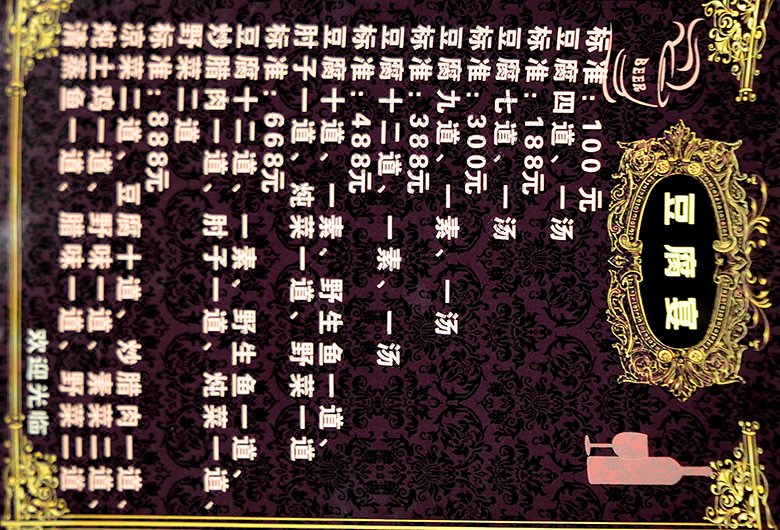 BEER
豆腐宴
标准:100元
豆腐四道、一汤
标准:188元
豆腐七道、一汤
标准:300元
豆腐九道、一素、一汤
标准:388元
豆腐十二道、一素、一汤
标准:488元
豆腐十道、一素、野生鱼一道、
肘子一道、炖菜一道、野菜一道
标准:668元
豆腐十二道、一素、野生鱼一道、
炒腊肉一道、肘子一道、炖菜一道、
野菜二道
标准:888元
凉菜二道、豆腐十道、炒腊肉一道、
炖土鸡一道、野味一道、素菜二道、
清蒸鱼一道、腊味一道、野菜二道、
欢迎光临